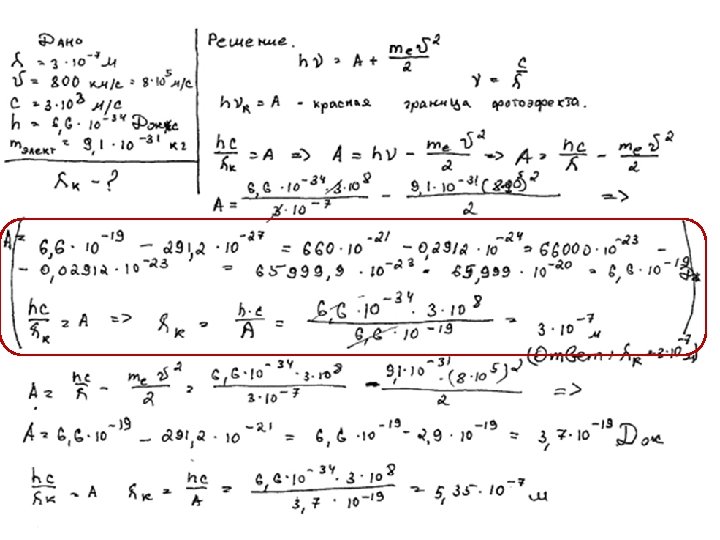 Дано
λ = 3·10⁻⁷ м
v = 800 км/с = 8·10⁵ м/с
c = 3·10⁸ м/с
h = 6,6·10⁻³⁴ Дж·с
mэлект = 9,1·10⁻³¹ кг
λк - ?
Решение.
hν = A + mₑv²/2
ν = c/λ
hνк = A - красная граница фотоэффекта.
hc/λк = A => A = hν - mₑv²/2 => A = hc/λ - mₑv²/2
A = 6,6·10⁻³⁴·3·10⁸/3·10⁻⁷ - 9,1·10⁻³¹ ( )²/2 =>
A = 6,6·10⁻¹⁹ - 291,2·10⁻²⁷ = 660·10⁻²¹ - 0,2912·10⁻²⁴ = 66000·10⁻²³ -
- 0,02912·10⁻²³ = 65999,9·10⁻²³ = 65,999·10⁻²⁰ = 6,6·10⁻¹⁹ Дж
hc/λк = A => λк = h·c/A = 6,6·10⁻³⁴·3·10⁸/6,6·10⁻¹⁹ = 3·10⁻⁷ м
(Ответ: λк = 3·10⁻⁷ м)
A = hc/λ - mₑv²/2 = 6,6·10⁻³⁴·3·10⁸/3·10⁻⁷ - 9,1·10⁻³¹·(8·10⁵)²/2 =>
A = 6,6·10⁻¹⁹ - 291,2·10⁻²¹ = 6,6·10⁻¹⁹ - 2,9·10⁻¹⁹ = 3,7·10⁻¹⁹ Дж
hc/λк = A λк = hc/A = 6,6·10⁻³⁴·3·10⁸/3,7·10⁻¹⁹ = 5,35·10⁻⁷ м